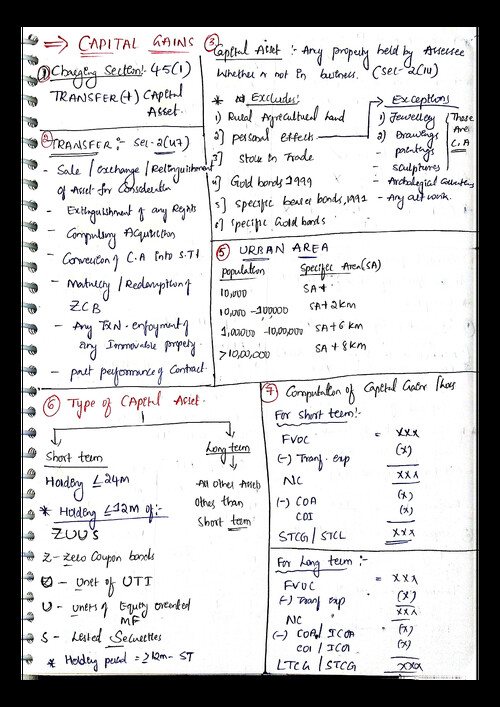 ⇒ CAPITAL GAINS
① Charging Section:- 45(1)
TRANSFER (+) Capital
Asset.
② TRANSFER:- Sec-2(47)
- Sale / Exchange / Relinquishment
of Asset for Consideration
- Extinguishment of any Rights
- Compulsory Acquisition
- Conversion of C.A into S.T
- Maturity / Redemption of
ZCB
- Any TXN. enjoyment of
any Immovable property
- part performance of Contract.
③ Capital Asset :- Any property held by Assessee
Whether or not in business. (Sec-2(14)
* Excludes:
1) Rural Agricultural Land
2] personal effects
3] Stock in Trade
4] Gold bonds 1999
5] Specific bearer bonds, 1991
6] Specific Gold bonds
Exceptions
1) Jewellery
2) Drawings
paintings
- Sculptures
- Archological Collections
- Any art work.
Those
Are
C.A
⑤ URBAN AREA
Population Specific Area (SA)
10,000 SA +
10,000 - 100000 SA + 2 KM
1,00000 - 10,00,000 SA + 6 KM
>10,00,000 SA + 8 KM
⑥ Type of Capital Asset.
Short term
Holding ≤ 24m
* Holding ≤ 12m of:-
ZUU'S
Z - Zero Coupon bonds
U - Unit of UTI
U - Units of Equity oriented
MF
S - Listed Securities
* Holding period = ≥12m - ST
Long term
All other Assets
Other than
Short term
⑦ Computation of Capital Gain
For Short term:-
FVOC = XXX
(-) Tranf. exp (X)
NC XXX
(-) COA (X)
COI (X)
STCG / STCL XXX
For Long term :-
FVOC = XXX
(-) Tranf exp (X)
NC XXX
(-) COA / ICOA (X)
COI / ICOI (X)
LTCG / STCG XXX